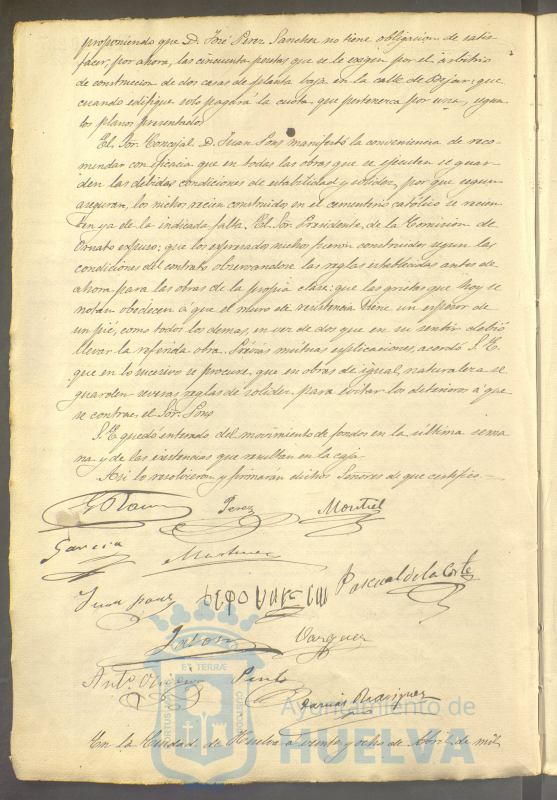 proponiendo que D. José Perez Sanchez no tiene obligacion de satis-
facer, por ahora, las cincuenta pesetas que se le exigen por el arbitrio
de construccion de dos casas de planta baja en la calle de Bejar; que
cuando edifique solo pagará la cuota que pertenezca por una, segun
los planos presentados.
El Sor. Concejal D. Juan Pons manifestó la conveniencia de reco-
mendar con eficacia que en todas las obras que se ejecuten se guar-
den las debidas condiciones de estabilidad y solidez, por que segun
aseguran, los nichos recien construidos en el cementerio católico se recien
ten ya de la indicada falta. El Sor. Presidente de la Comision de
Ornato espuso: que los espresados nichos fueron construidos segun las
condiciones del contrato observandose las reglas establecidas antes de
ahora para las obras de la propia clase: que las grietas que hoy se
notan obedecen á que el muro de resistencia tiene un espesor de
un pié, como todos los demas, en vez de dos que en su sentir debió
llevar la referida obra. Prévias mútuas esplicaciones, acordó S. E.
que en lo sucesivo se procure que en obras de igual naturaleza se
guarden severas reglas de solidez para evitar los deterioros á que
se contrae el Sor. Pons
S. E. quedó enterado del movimiento de fondos en la última sema
na y de las existencias que resultan en la caja.
Asi lo resolvieron y firmaran dichos Señores de que certifico.
Perez Montiel
Garcia Martinez
Juan Pons Pascual de la Corte
Vazquez
Anto. Pinto
Garcia Rodriguez
ET TERRÆ
PORTUS CUSTODIA
Ayuntamiento de
HUELVA
En la Ciudad de Huelva á veinte y ocho de Abril de mil